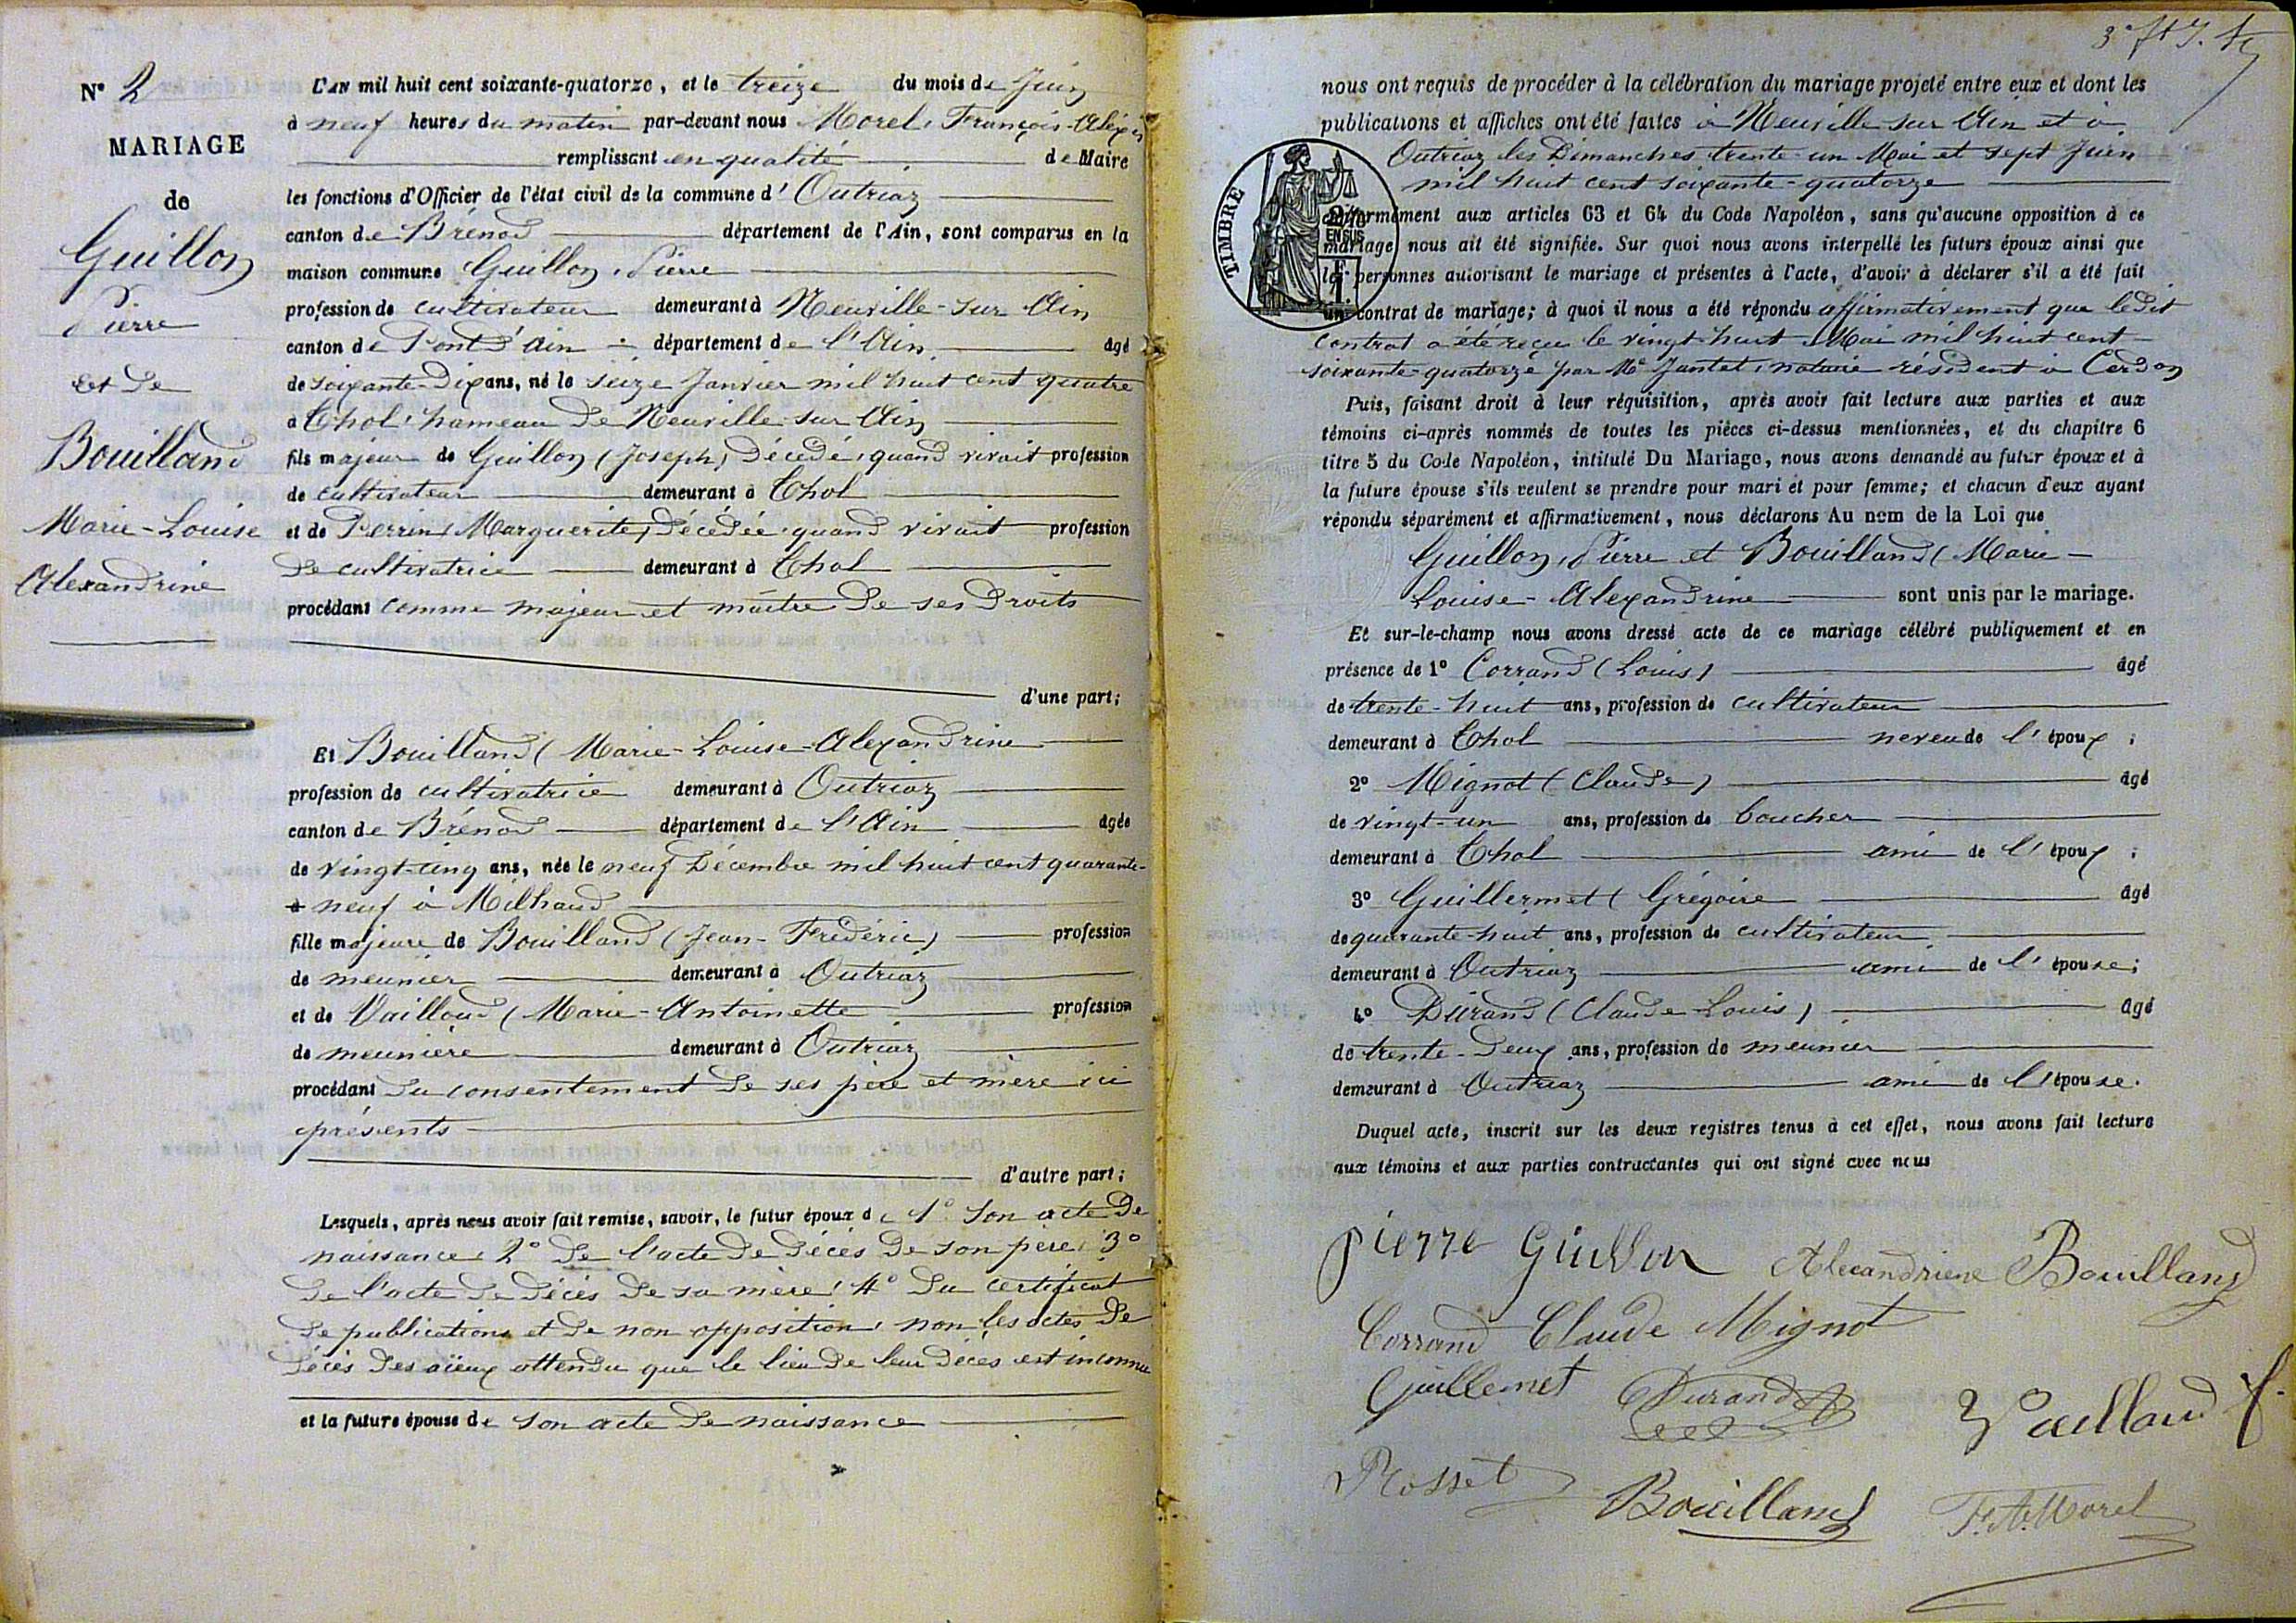 N° 2
MARIAGE
de
Guillon
Pierre
et de
Bouilland
Marie-Louise
Alexandrine
L'AN mil huit cent soixante-quatorze, et le treize du mois de Juin
à neuf heures du matin par-devant nous Morel, François-Alexis
remplissant en qualité de Maire
les fonctions d'Officier de l'état civil de la commune d'Outriaz
canton de Brénod département de l'Ain, sont comparus en la
maison commune Guillon, Pierre
profession de cultivateur demeurant à Neuville-sur Ain
canton de Pont d'ain département de l'Ain âgé
de soixante-dix ans, né le seize Janvier mil huit cent quatre
à Thol, hameau de Neuville sur Ain
fils majeur de Guillon (Joseph) décédé, quand vivait profession
de cultivateur demeurant à Thol
et de Perrin (Marguerite) décédée quand vivait profession
de cultivatrice demeurant à Thol
procédant comme majeur et maître de ses droits
d'une part;
Et Bouilland (Marie-Louise-Alexandrine
profession de cultivatrice demeurant à Outriaz
canton de Brénod département de l'Ain âgée
de vingt-cinq ans, née le neuf Décembre mil huit cent quarante-
à neuf à Milhaud
fille majeure de Bouilland (Jean-Frédéric) profession
de meunier demeurant à Outriaz
et de Vailloud (Marie-Antoinette profession
de meunière demeurant à Outriaz
procédant du consentement de ses père et mère ici
présents
d'autre part;
Lesquels, après nous avoir fait remise, savoir, le futur époux de 1° Son acte de
naissance, 2° de l'acte de décès de son père, 3°
de l'acte de décès de sa mère, 4° du certificat
de publications et de non opposition, non les actes de
décès des aïeux attendu que le lieu de leur décès est inconnu
et la future épouse de son acte de naissance
nous ont requis de procéder à la célébration du mariage projeté entre eux et dont les
publications et affiches ont été faites à Neuville sur Ain et à
Outriaz les Dimanches trente-un Mai et sept Juin
mil huit cent soixante-quatorze
TIMBRE
EN SUS
conformément aux articles 63 et 64 du Code Napoléon, sans qu'aucune opposition à ce
mariage nous ait été signifiée. Sur quoi nous avons interpellé les futurs époux ainsi que
les personnes autorisant le mariage et présentes à l'acte, d'avoir à déclarer s'il a été fait
un contrat de mariage; à quoi il nous a été répondu affirmativement que ledit
contrat a été reçu le vingt-huit Mai mil huit cent
soixante-quatorze par Me Jantet, notaire résident à Cerdon
Puis, faisant droit à leur réquisition, après avoir fait lecture aux parties et aux
témoins ci-après nommés de toutes les pièces ci-dessus mentionnées, et du chapitre 6
titre 5 du Code Napoléon, intitulé Du Mariage, nous avons demandé au futur époux et à
la future épouse s'ils veulent se prendre pour mari et pour femme; et chacun d'eux ayant
répondu séparément et affirmativement, nous déclarons Au nom de la Loi que
Guillon, Pierre et Bouilland (Marie-
Louise-Alexandrine sont unis par le mariage.
Et sur-le-champ nous avons dressé acte de ce mariage célébré publiquement et en
présence de 1° Corrand (Louis) âgé
de trente-huit ans, profession de cultivateur
demeurant à Thol neveu de l'époux;
2° Mignot (Claude) âgé
de vingt-un ans, profession de boucher
demeurant à Thol ami de l'époux;
3° Guillermet (Grégoire âgé
de quarante-huit ans, profession de cultivateur
demeurant à Outriaz ami de l'épouse;
4° Durand (Claude-Louis) âgé
de trente-deux ans, profession de meunier
demeurant à Outriaz ami de l'épouse.
Duquel acte, inscrit sur les deux registres tenus à cet effet, nous avons fait lecture
aux témoins et aux parties contractantes qui ont signé avec nous
pierre Guillon Alexandrine Bouilland
Corrand Claude Mignot
Guillermet Durand Vailloud f.
Rosset Bouilland F.A. Morel